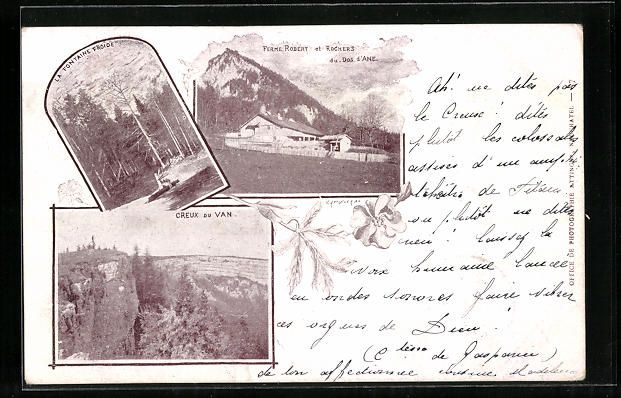 LA FONTAINE FROIDE
FERME ROBERT et ROCHERS
du DOS d'ANE.
CREUX DU VAN
OFFICE DE PHOTOGRAPHIE ATTINGER NEUCHATEL — 27
Ah! ne dites pas
le Creux! dites
plutôt les colossales
assises d'un amphi
théâtre de Titans
ou plutôt ne dites
rien! laissez la
voix humaine lancée
en ondes sonores faire vibrer
ces orgues de Dieu!
(Ctesse de Gasparin)
de ton affectionnée cousine Madeleine